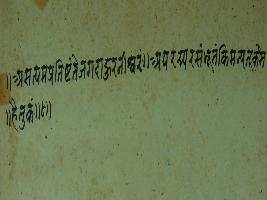 ॥असत्यमप्रतिष्टंतेजगदाहुरनीश्वरं॥अपरस्परसंभूतंकिमन्यत्काम
॥हेतुकं॥८॥